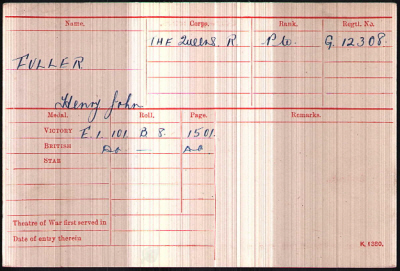 Name. Corps. Rank. Regtl. No.
THE Queens. R. Pte. G. 12308.
FULLER
Henry John
Medal. Roll. Page. Remarks.
VICTORY E. 1. 101. B 8. 1501.
BRITISH Do — Do
STAR
Theatre of War first served in
Date of entry therein
K. 1380.